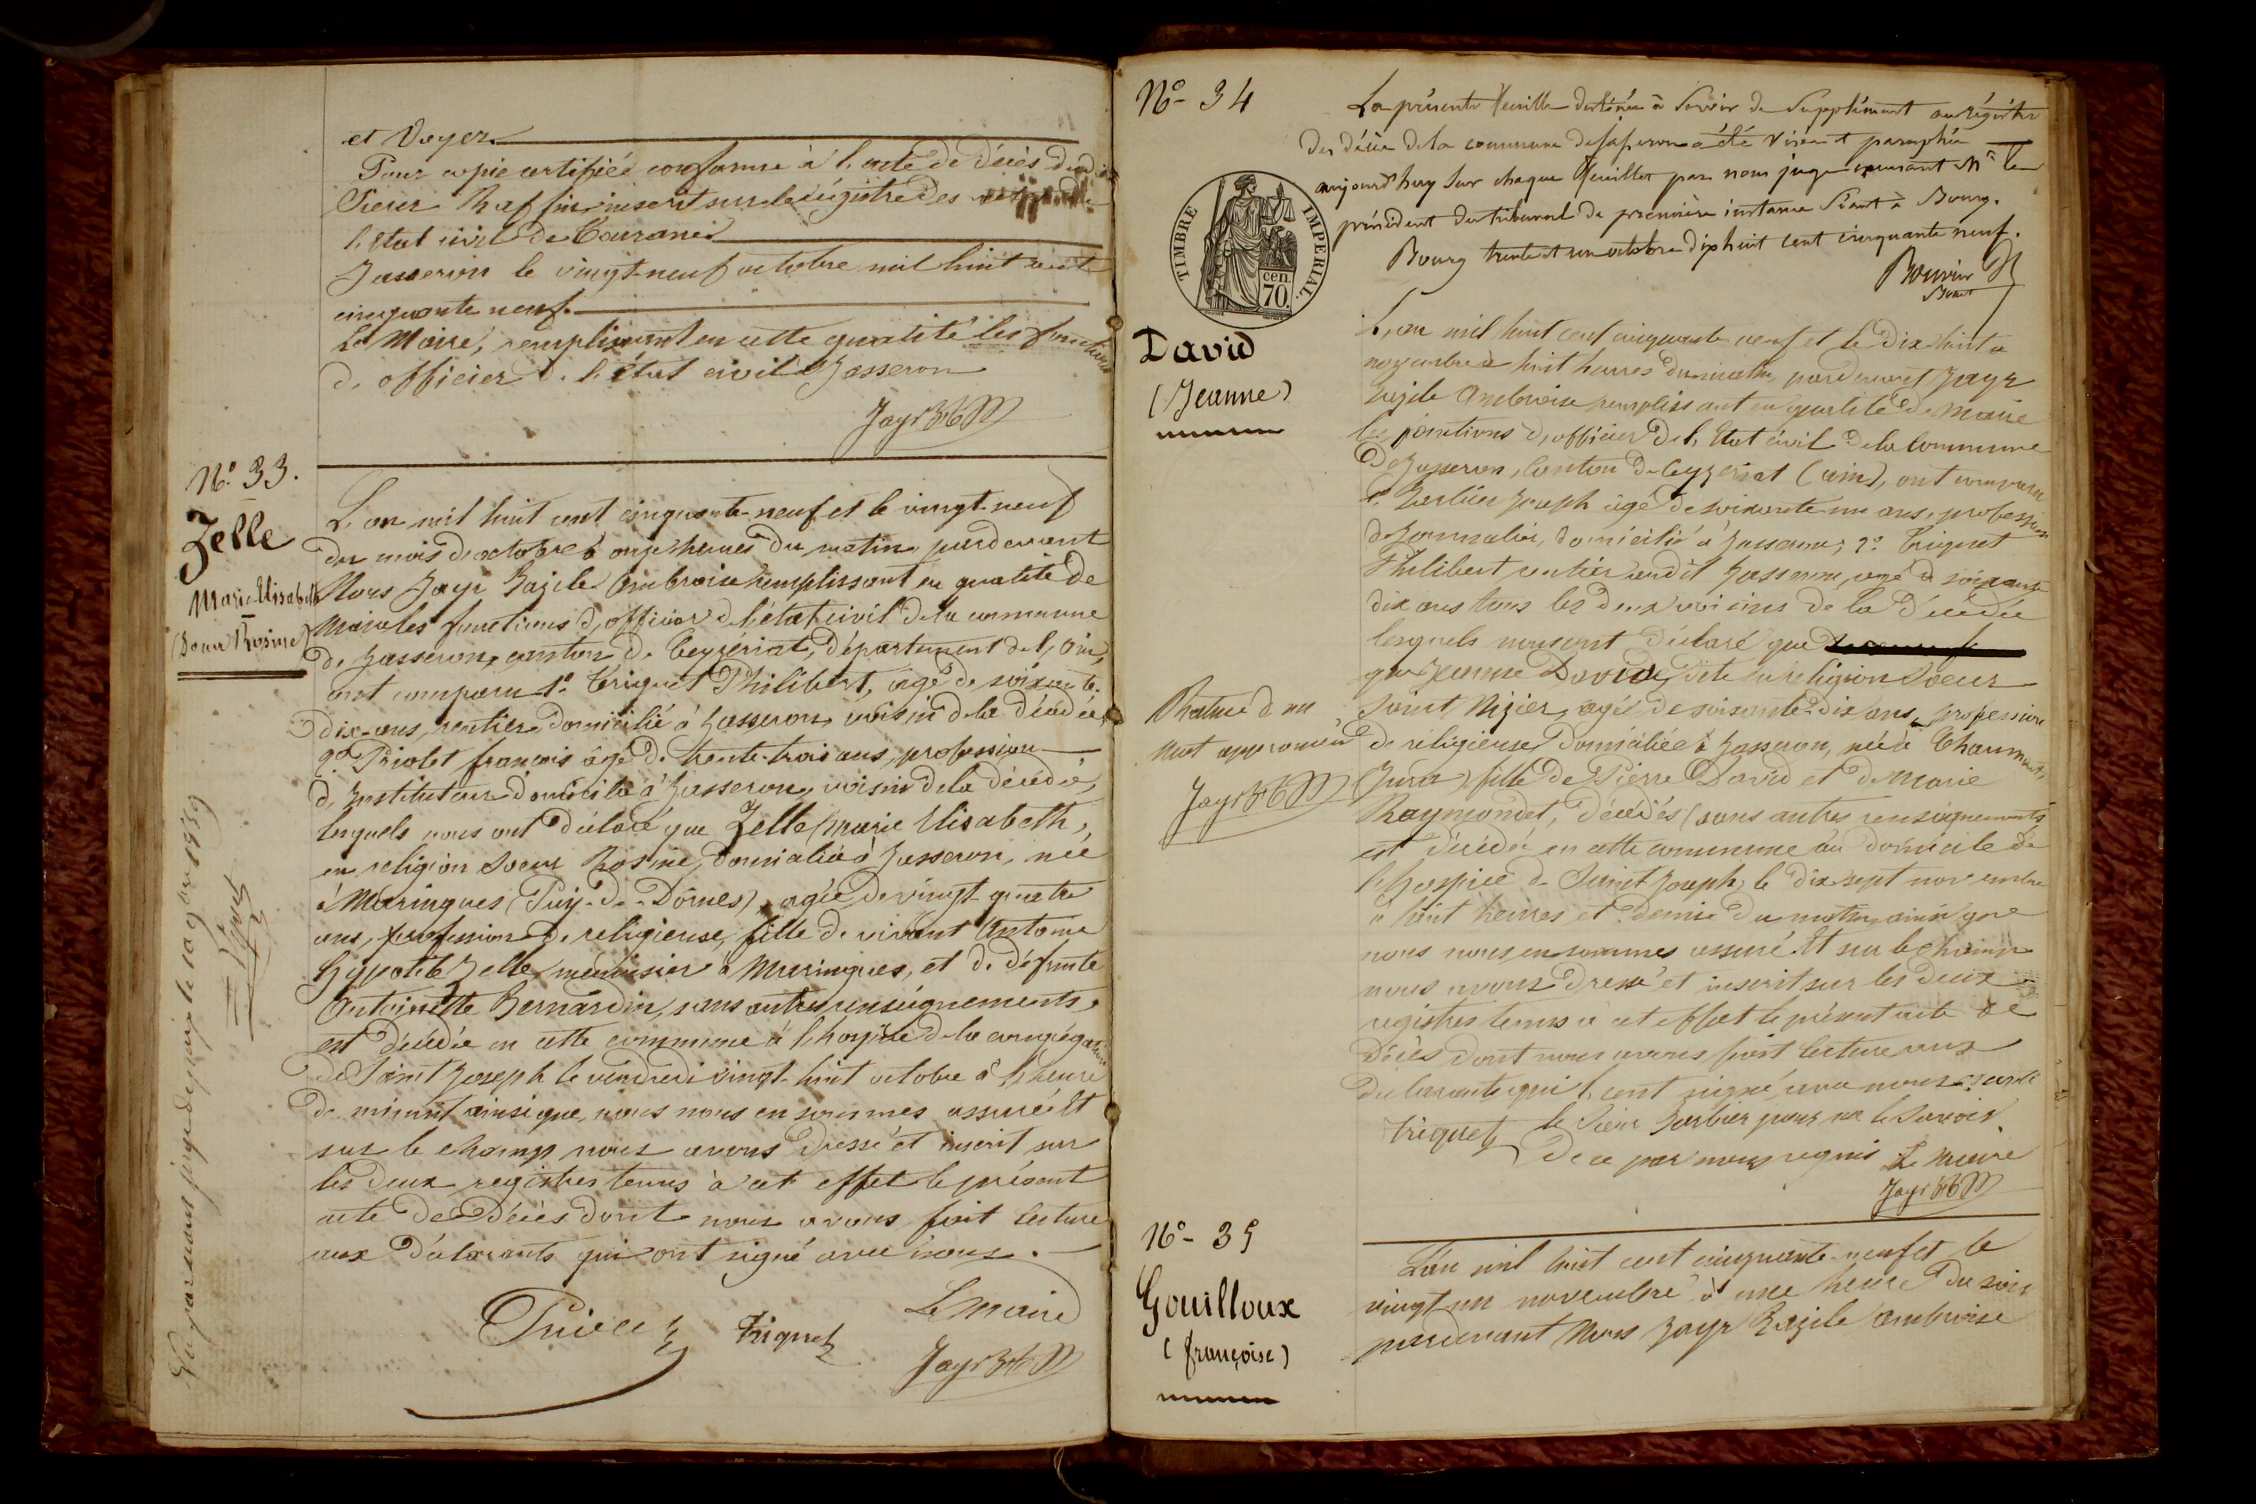 et Voyer
Pour copie certifiée conforme à l'acte de décès dudit
Sieur Raffin inscrit sur le régistre des
l'état civil de
Jasseron le vingt-neuf octobre mil huit cent
cinquante neuf.
Le Maire, remplissant en cette qualité les fonctions
de officier de l'état civil de Jasseron
Jayr
N° 33.
Zelle
Marie Elisabeth
(Soeur Rosine)
L'an mil huit cent cinquante-neuf et le vingt-neuf
du mois d'octobre à onze heures du matin, pardevant
Nous Jayr Bazile Ambroise remplissant en qualité de
Maire les fonctions d'officier de l'état civil de la commune
de Jasseron, canton de Ceyzériat, département de l'Ain,
ont comparu 1° Triquet Philibert, agé de soixante-
dix-ans, rentier domicilié à Jasseron, voisin de la décédée,
2° Priolet françois âgé de trente-trois ans, profession
d'Instituteur domicilié à Jasseron, voisin de la décédée,
lesquels nous ont déclaré que Zelle Marie Elisabeth,
en religion Soeur Rosine, domiciliée à Jasseron, née
à Maringues (Puy-De-Dômes), agée de vingt-quatre
ans, profession de religieuse, fille de vivant Antoine
Hypolite Zelle menuisier à Maringues, et de défunte
Antoinette Bernardin, sans autres renseignements,
est décédée en cette commune à l'hospice de la congrégation
de Saint Joseph le vendredi vingt-huit octobre à l'heure
de minuit ainsi que nous nous en sommes assuré. Et
sur le champ nous avons dressé et inscrit sur
les deux registres tenus à cet effet le présent
acte de Décès dont nous avons fait lecture
aux déclarants qui ont signé avec nous.
Triquet
Le maire
Jayr
N° 34
La présente feuille destinée à servir de Supplément au régistre
des décès de la commune de Jasseron a été visée et paraphée
aujourd'huy sur chaque feuillet par nous juge Mr le
président du tribunal de première instance séant à Bourg.
Bourg trente et un octobre dix huit cent cinquante neuf.
TIMBRE IMPERIAL.
cen.
70.
David
(Jeanne)
L'an mil huit cent cinquante neuf et le dix-huit
novembre à huit heures du matin, pardevant Jayr
Bazile Ambroise remplissant en qualité de maire
les fonctions d'officier de l'Etat civil de la Commune
de Jasseron, Canton de Ceyzériat (ain), ont comparu
1° Joseph agé de soixante un ans, profession
de Journalier, domicilié à Jasseron; 2° Triquet
Philibert, rentier audit Jasseron, agé de soixante
dix ans tous les deux voisins de la Décédée
lesquels nous ont déclaré que
que Jeanne David, dite en religion Soeur
Saint Nizier, agée de soixante-dix ans, profession
de religieuse domiciliée à Jasseron, née à
(Jura), fille de Pierre David et de Marie
Raymondet, décédés (sans autres renseignements
est décédée en cette commune au domicile de
l'hospice de Saint Joseph, le dix sept novembre
à huit heures et demie du matin ainsi que
nous nous en sommes assuré. Et sur le champ
nous avons dressé et inscrit sur les deux
registres tenus à cet effet le présent acte de
décès dont nous avons fait lecture aux
déclarants qui l'ont signé avec nous,
le Sieur pour ne le Savoir
Triquet de ce par nous requis Le maire
Jayr
Rature d'un
mot approuvée
Jayr
N° 35
Gouilloux
(françoise)
L'an mil huit cent cinquante-neuf et le
vingt un novembre à une heure du soir
pardevant Nous Jayr Bazile Ambroise